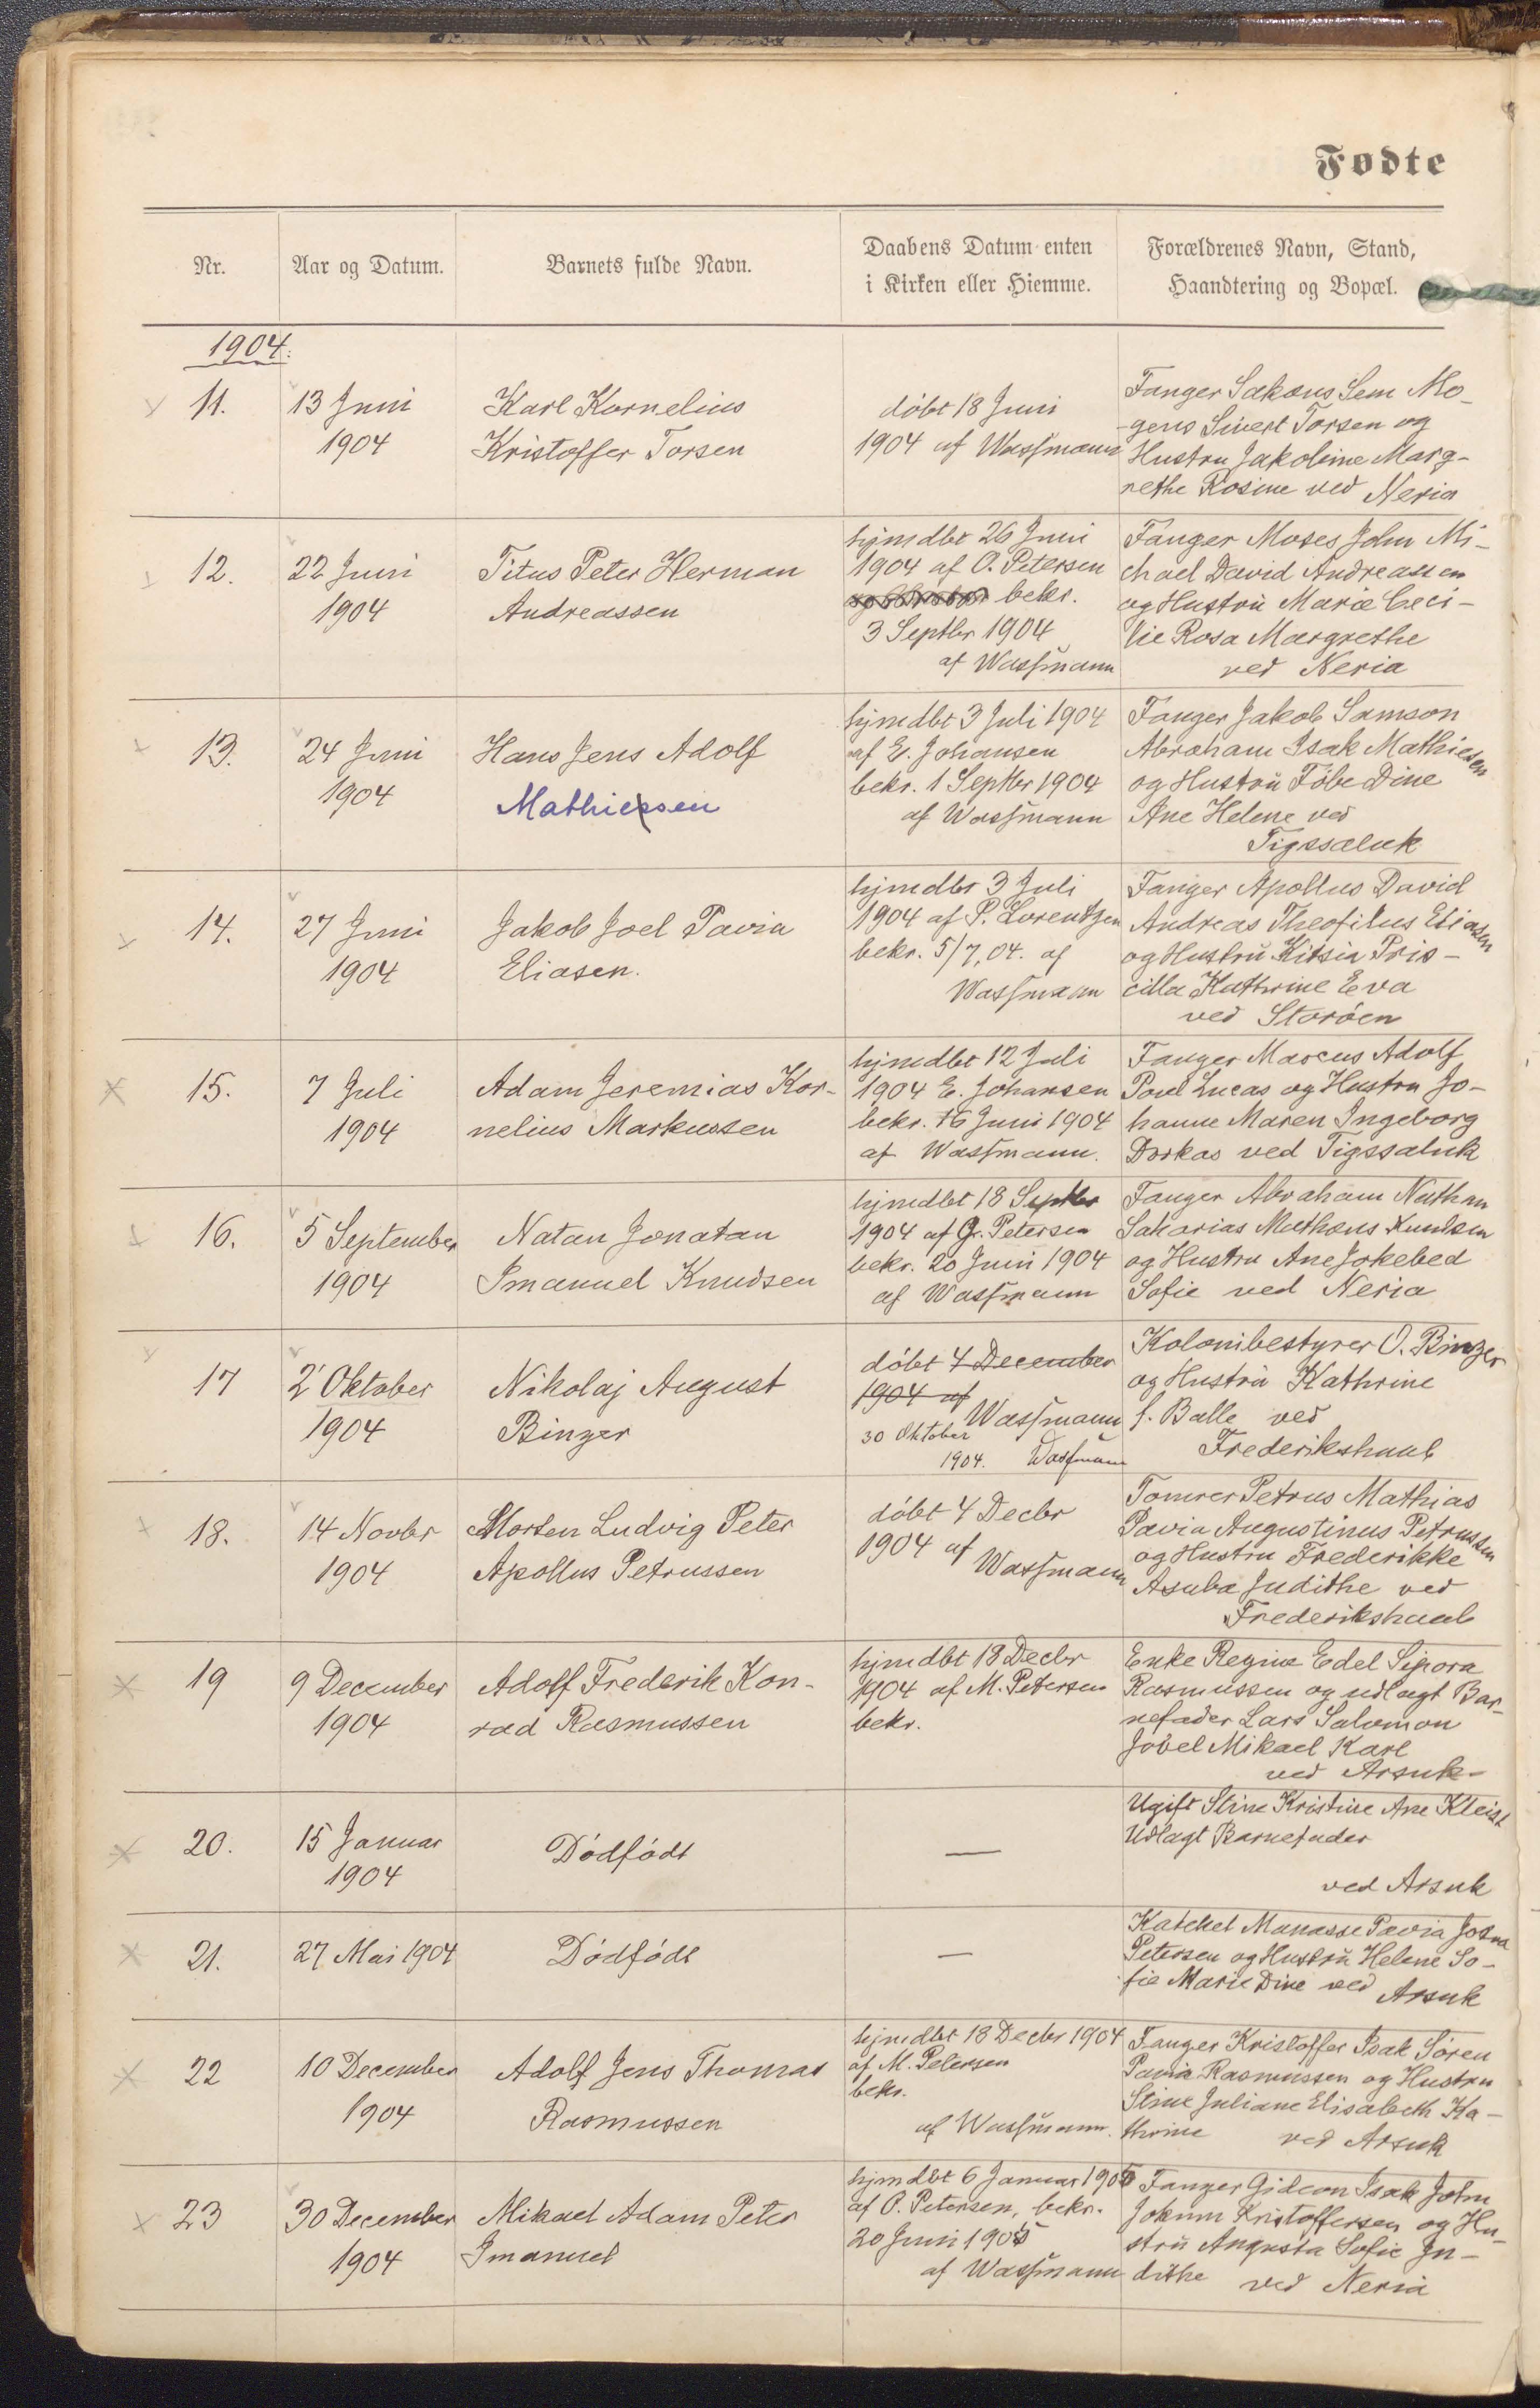 Fødte
Nr.
Aar og Datum.
Barnets fulde Navn.
Daabens Datum enten
i Kirken eller Hiemme.
Forældrenes Navn, Stand,
Haandtering og Bopæl.
1904.
11.
13 Juni
1904
Karl Kornelius
Kristoffer Torsen
døbt 18 Juni
1904 af Wassmann
Fanger Sakæus Sem Mo-
gens Sivert Torsen og
Hustru Jakobine Marg-
rethe Rosine ved Neria
12.
22 Juni
1904
Titus Peter Herman
Andreassen
hjmdbt 26 Juni
1904 af O. Petersen
bekr.
3 Septbr 1904
af Wassmann
Fanger Moses John Mi-
chael David Andreassen
og Hustru Marie Ceci-
lie Rosa Margrethe
ved Neria
13.
24 Juni
1904
Hans Jens Adolf
Mathiesen
hjmdbt 3 Juli 1904
af E. Johansen
bekr. 1 Septbr 1904
af Wassmann
Fanger Jakob Samson
Abraham Isak Mathiesen
og Hustru Føbe Dine
Ane Helene ved
Tigssaluk
14.
27 Juni
1904
Jakob Joel Pavia
Eliasen.
hjmdbt 3 Juli
1904 af P. Lorentzen
bekr. 5/7, 04. af
Wassmann
Fanger Apollus David
Andreas Theofilus Eliasen
og Hustru Kitsia Pris-
cilla Kathrine Eva
ved Storøen
15.
7 Juli
1904
Adam Jeremias Kor-
nelius Markussen
hjmdbt 12 Juli
1904 E. Johansen
bekr. 16 Juni 1904
af Wassmann.
Fanger Marcus Adolf
Poul Lucas og Hustru Jo-
hanne Maren Ingeborg
Dorkas ved Tigssaluk
16.
5 September
1904
Natan Jonatan
Imanuel Knudsen
hjmdbt 18 Septbr
1904 af G. Petersen
bekr. 20 Juni 1904
af Wassmann
Fanger Abraham Nathan
Sakarias Mathæus Knudsen
og Hustru Ane Jokebed
Sofie ved Neria
17
2 Oktober
1904
Nikolaj August
Binzer
døbt 4 December
1904 af
Wassmann
30 Oktober
1904. Wassmann
Kolonibestyrer O. Binzer
og Hustru Kathrine
f. Balle ved
Frederikshaab
18.
14 Novbr
1904
Morten Ludvig Peter
Apollus Petrussen
døbt 4 Decbr
1904 af
Wassmann
Tømrer Petrus Mathias
Pavia Augustinus Petrussen
og Hustru Frederikke
Asuba Judithe ved
Frederikshaab
19
9 December
1904
Adolf Frederik Kon-
rad Rasmussen
hjmdbt 18 Decbr
1904 af M. Petersen
bekr.
Enke Regine Edel Sipora
Rasmussen og udlagt Bar-
nefader Lars Salomon
Jøbel Mikael Karl
ved Arsuk-
20.
15 Januar
1904
Dødfødt
—
Ugift Stine Kristine Ane Kleist
Udlagt Barnefader
ved Arsuk
21.
27 Mai 1904
Dødfødt
—
Kateket Manasse Pavia Josva
Petersen og Hustru Helene So-
fie Marie Dine ved Arsuk
22
10 December
1904
Adolf Jens Thomas
Rasmussen
hjmdbt 18 Decbr 1904
af M. Petersen
bekr.
af Wassmann.
Fanger Kristoffer Isak Søren
Pavia Rasmussen og Hustru
Stine Juliane Elisabeth Ka-
thrine ved Arsuk
23
30 December
1904
Mikael Adam Peter
Imanuel
hjmdbt 6 Januar 1905
af O. Petersen, bekr.
20 Juni 1905
af Wassmann
Fanger Gideon Isak John
Jokum Kristoffersen og Hu-
stru Augusta Sofie Ju-
dithe ved Neria